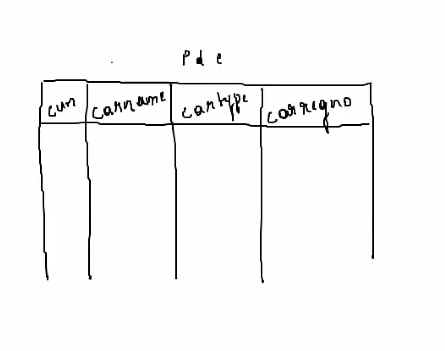 P d e
cun carname cartype carregno